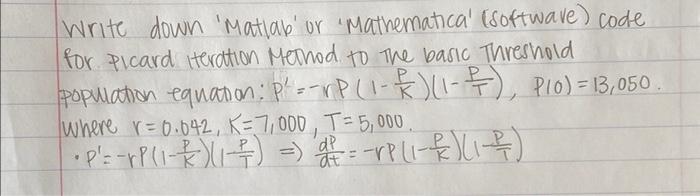 Write down 'Matlab' or 'Mathematica' (software) code
for Picard iteration Method to The basic Threshold
population equation: P' = -rP(1-P/K)(1-P/T), P(0)=13,050.
where r=0.042, K=7,000, T=5,000.
• P'=-rP(1-P/K)(1-P/T) ⇒ dP/dt = -rP(1-P/K)(1-P/T)